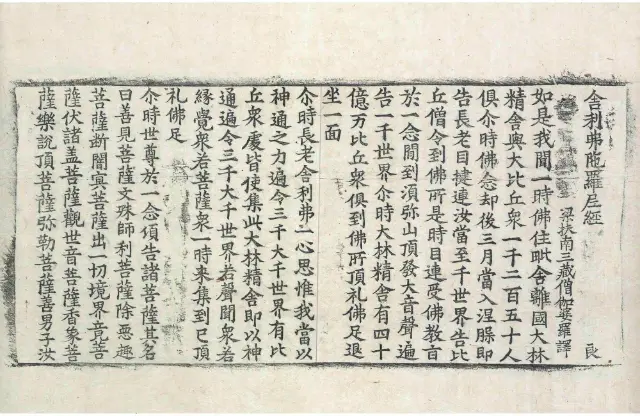 舍利弗陁羅尼經
梁扶南三藏僧伽婆羅譯
良
如是我聞一時佛住毗舍離國大林
精舍與大比丘衆一千二百五十人
俱尒時佛念却後三月當入涅槃即
告長老目揵連汝當至千世界告比
丘僧令到佛所是時目連受佛教言
於一念間到湏弥山頂發大音聲遍
告一千世界尒時大林精舍有四十
億万比丘衆俱到佛所頂礼佛足退
坐一面
尒時長老舍利弗一心思惟我當以
神通之力遍令三千大千世界有比
丘衆處皆使集此大林精舍即以神
通遍令三千大千世界若聲聞衆若
緣覺衆若菩薩衆一時来集到已頂
礼佛足
尒時世尊於一念須告諸菩薩其名
曰善見菩薩文殊師利菩薩除惡趣
菩薩断闇冥菩薩出一切境界菩
薩伏諸盖菩薩觀世音菩薩香象菩
薩樂說頂菩薩弥勒菩薩善男子汝